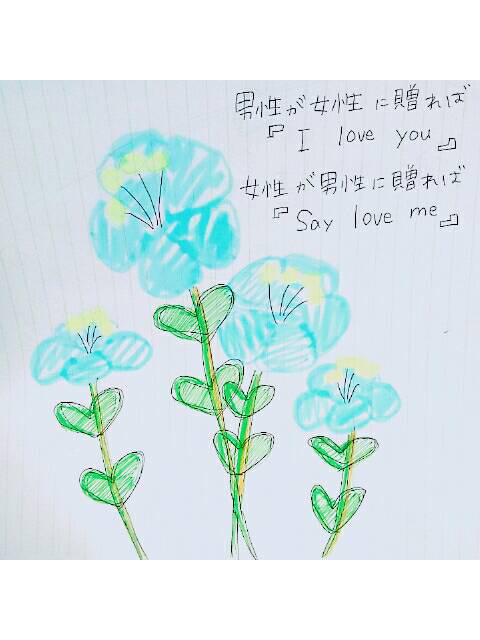 男性が女性に贈れば
『I love you』
女性が男性に贈れば
『Say love me』